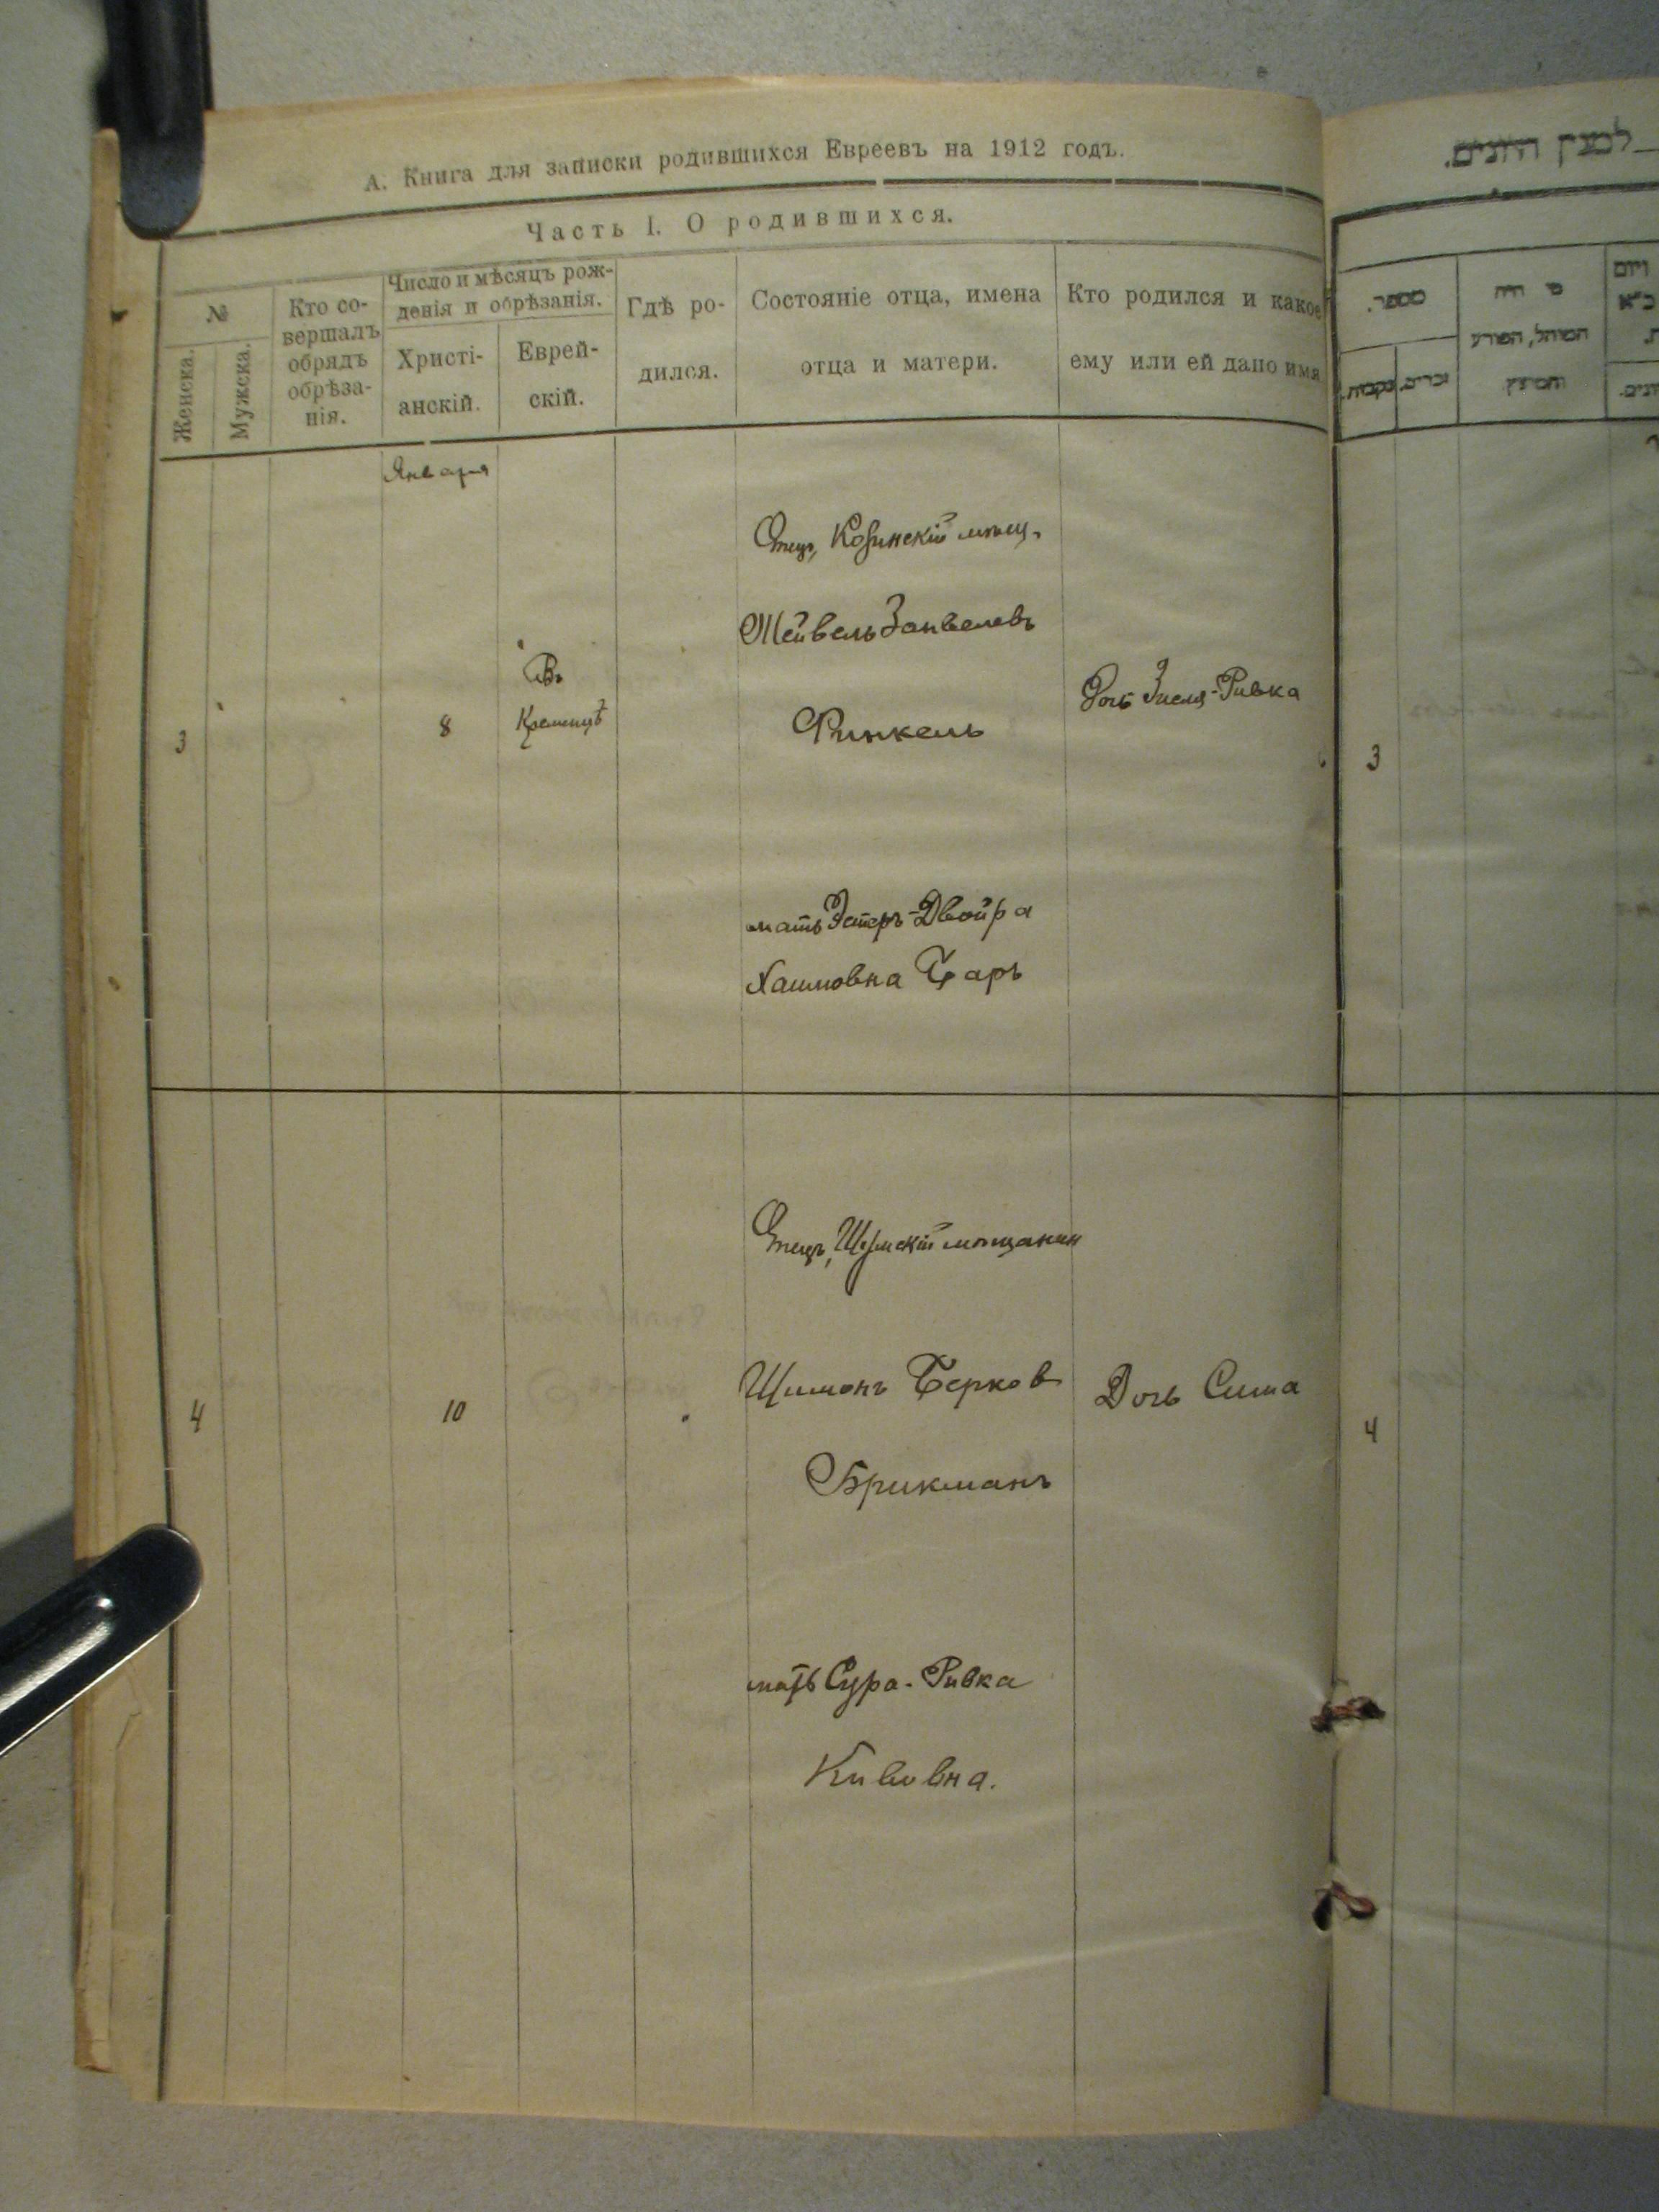 А. Книга для записки родившихся Евреевъ на 1912 годъ.
Часть I. О родившихся.
№
Женска.
Мужска.
Кто со-
вершалъ
обрядъ
обрѣза-
нія.
Число и мѣсяцъ рож-
денія и обрѣзанія.
Христі-
анскій.
Еврей-
скій.
Гдѣ ро-
дился.
Состояніе отца, имена
отца и матери.
Кто родился и какое
ему или ей дано имя
Января
3
8
Въ
Кременцѣ
Отецъ, Козинскій мѣщ.
Мейвель Занвелевъ
Финкель
мать Эстеръ-Двойра
Хаимовна Баръ
Дочь Зисля-Ривка
4
10
Отецъ, Шумскій мѣщанин
Шимонъ Берков
Брикманъ
мать Сура-Ривка
Кивовна.
Дочь Сима
מספר.
זכרים.
נקבות.
מי היה
המוהל, הפורע
והמוצץ
3
4